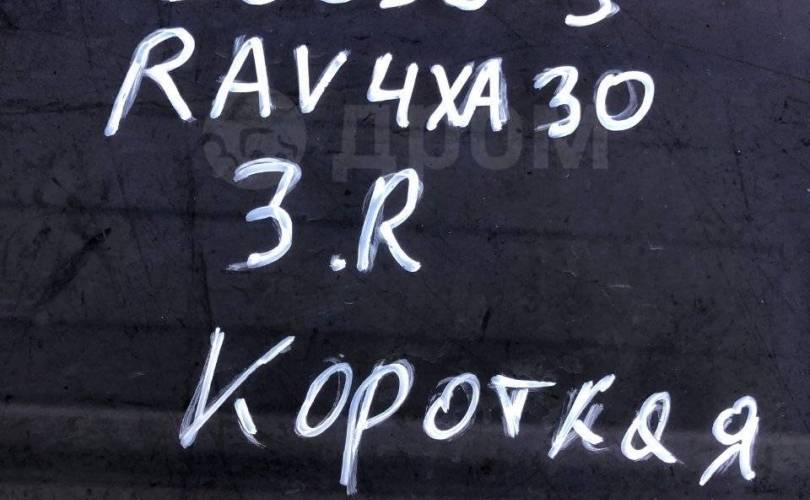 RAV 4 XA 30
З.R
Короткая
дром